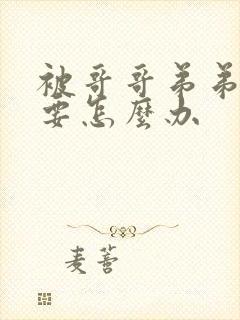 被哥哥弟弟
要怎麼办
麦蓍